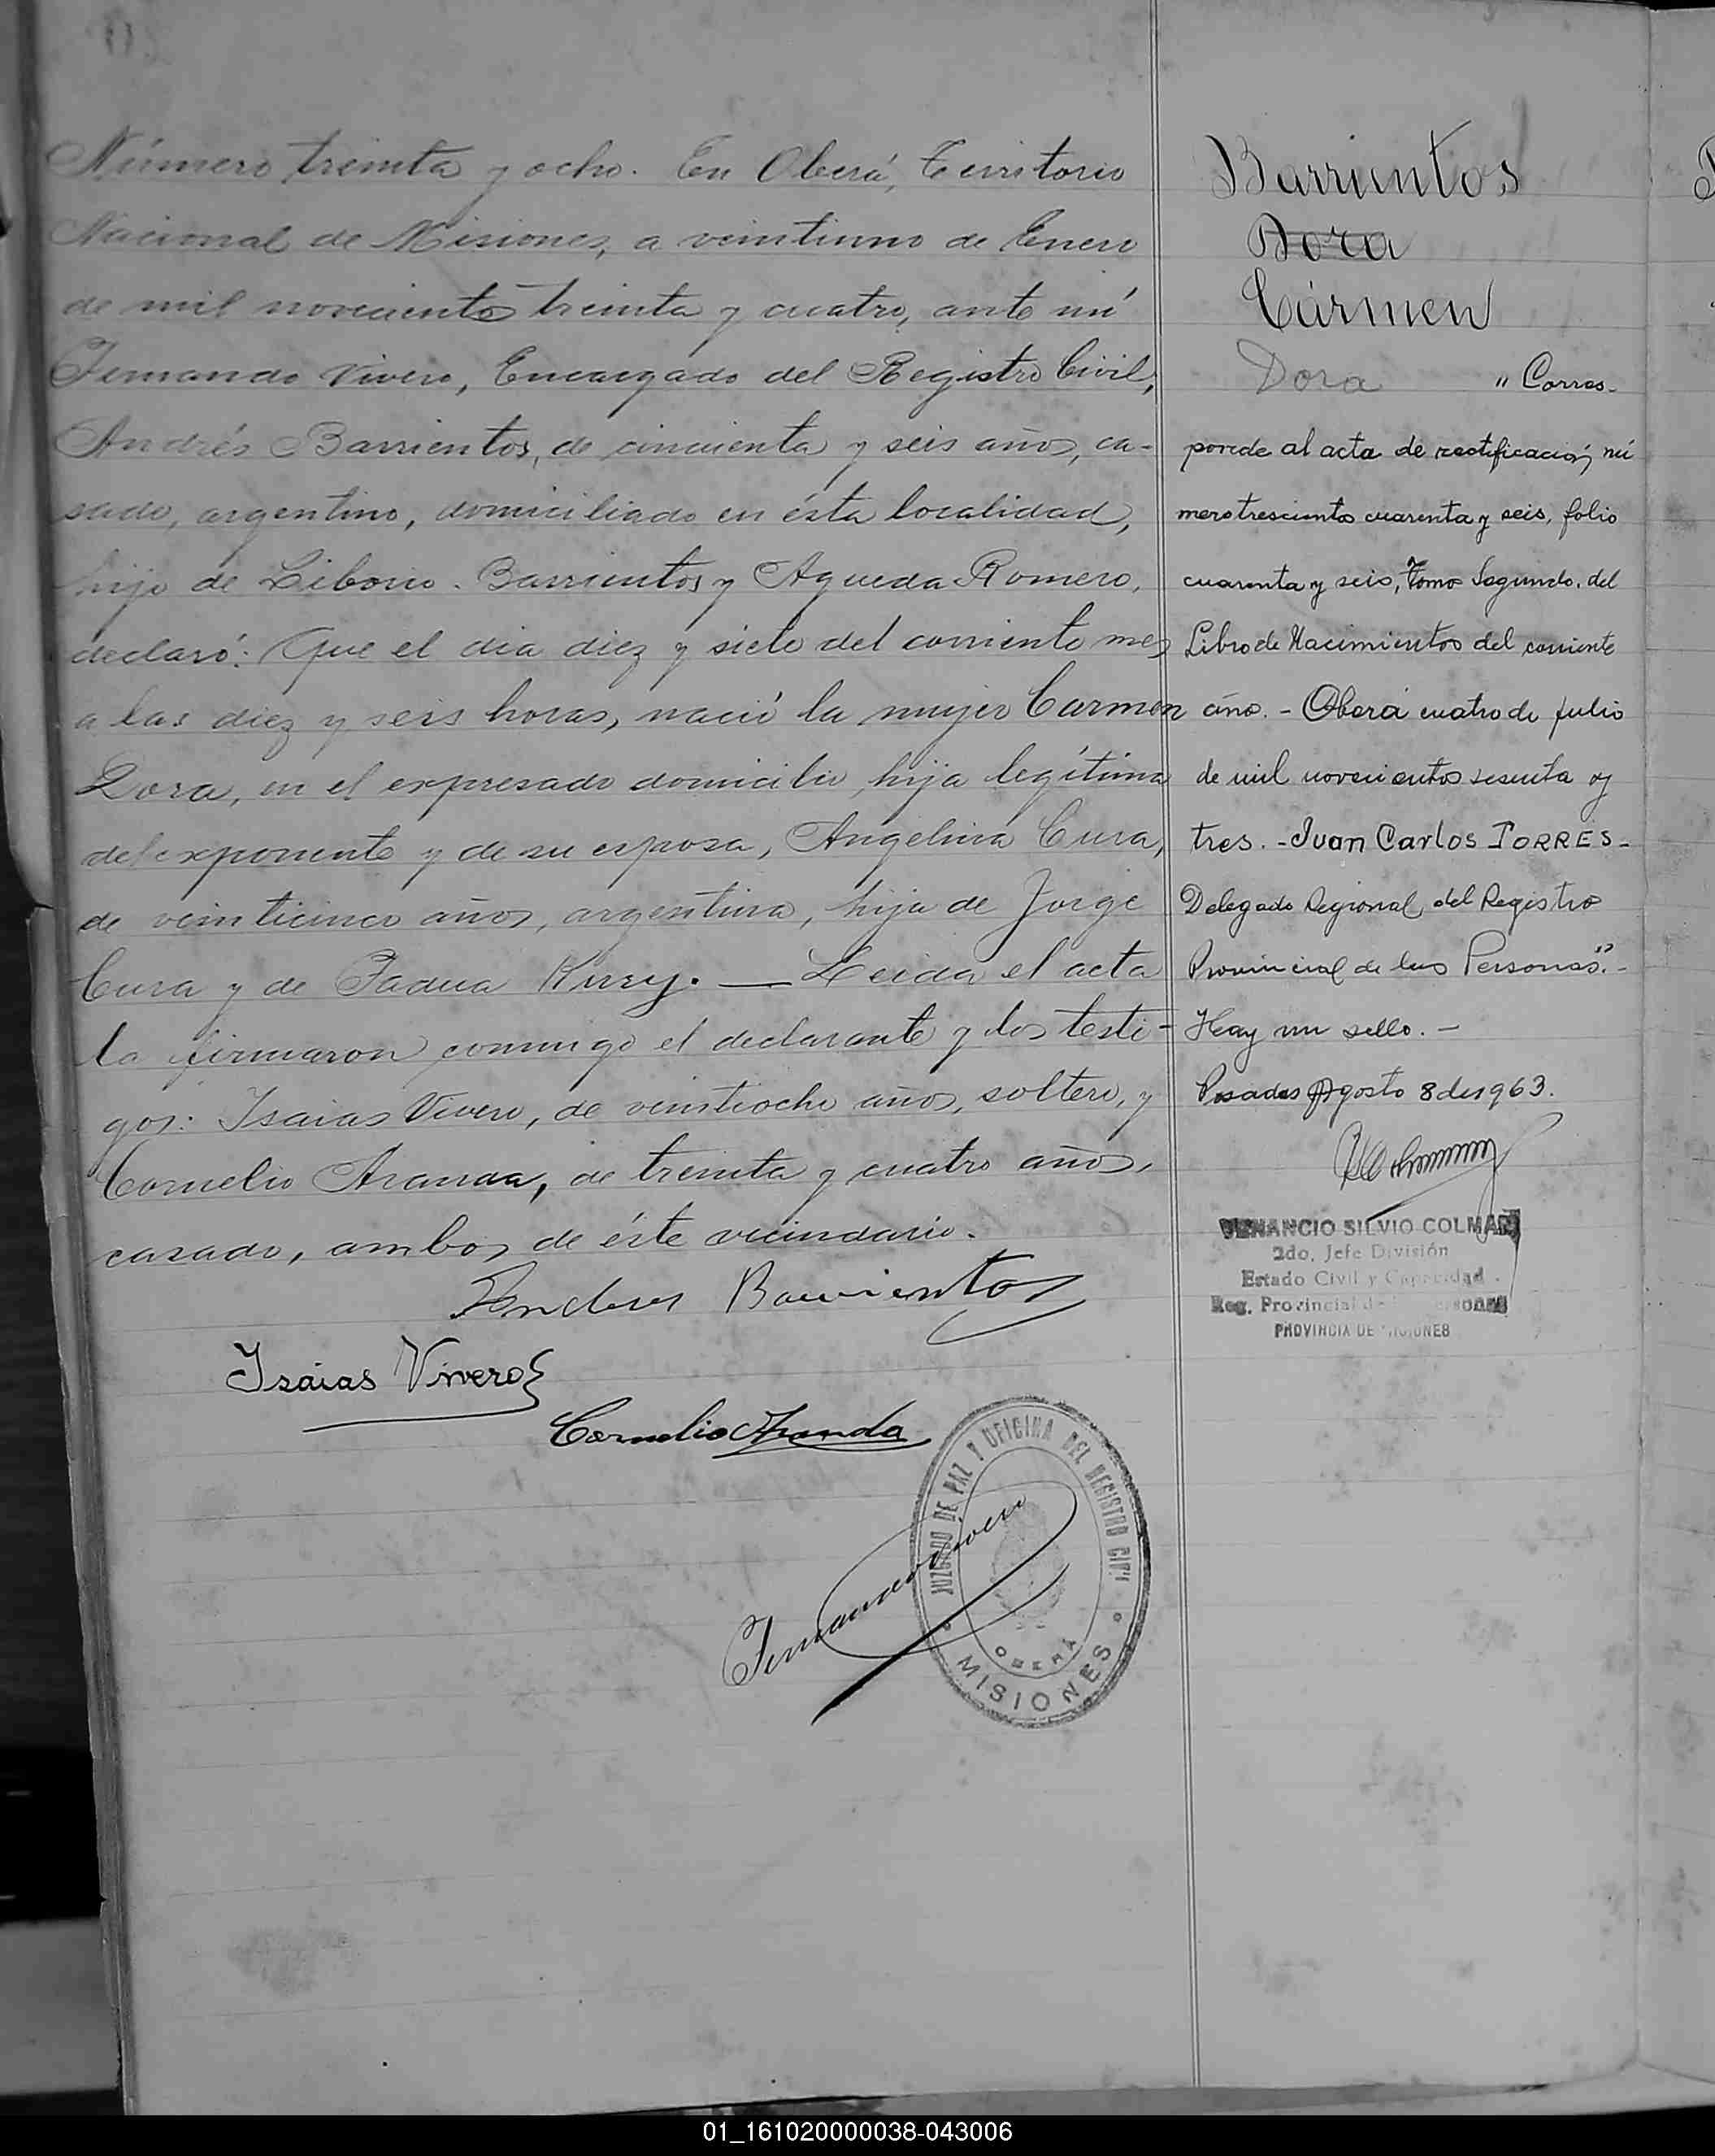 Número treinta y ocho. En Oberá, Territorio
Nacional de Misiones, a veintiuno de Enero
de mil novecientos treinta y cuatro, ante mí
Fernando Vivero, Encargado del Registro Civil,
Andrés Barrientos, de cincuenta y seis años, ca-
sado, argentino, domiciliado en ésta localidad,
hijo de Liborio Barrientos y Agueda Romero,
declaró: Que el dia diez y siete del corriente mes
a las diez y seis horas, nació la mujer Carmen
Dora, en el expresado domicilio, hija legítima
del exponente y de su esposa, Angelina Cura,
de veinticinco años, argentina, hija de Jorge
Cura y de Padua Kury. — Leida el acta
la firmaron conmigo el declarante y los testi-
gos: Isaias Vivero, de veintiocho años, soltero, y
Cornelio Aranda, de treinta y cuatro años,
casado, ambos de éste vecindario.
Andres Barrientos
Isaias Vivero
Cornelio Aranda
Fernando Vivero
JUZGADO DE PAZ Y OFICINA DEL REGISTRO CIVIL
OBERÁ
MISIONES
Barrientos
Dora
Cármen
Dora " Corres-
ponde al acta de rectificación, nú
mero trescientos cuarenta y seis, folio
cuarenta y seis, Tomo Segundo, del
Libro de Nacimientos del corriente
año. - Oberá cuatro de julio
de mil novecientos sesenta y
tres. - Juan Carlos TORRES -
Delegado Regional del Registro
Provincial de las Personas". -
Hay un sello. -
Posadas Agosto 8 de 1963.
VENANCIO SILVIO COLMAN
2do. Jefe División
Estado Civil y Capacidad
Reg. Provincial de Personas
PROVINCIA DE MISIONES
01_161020000038-043006